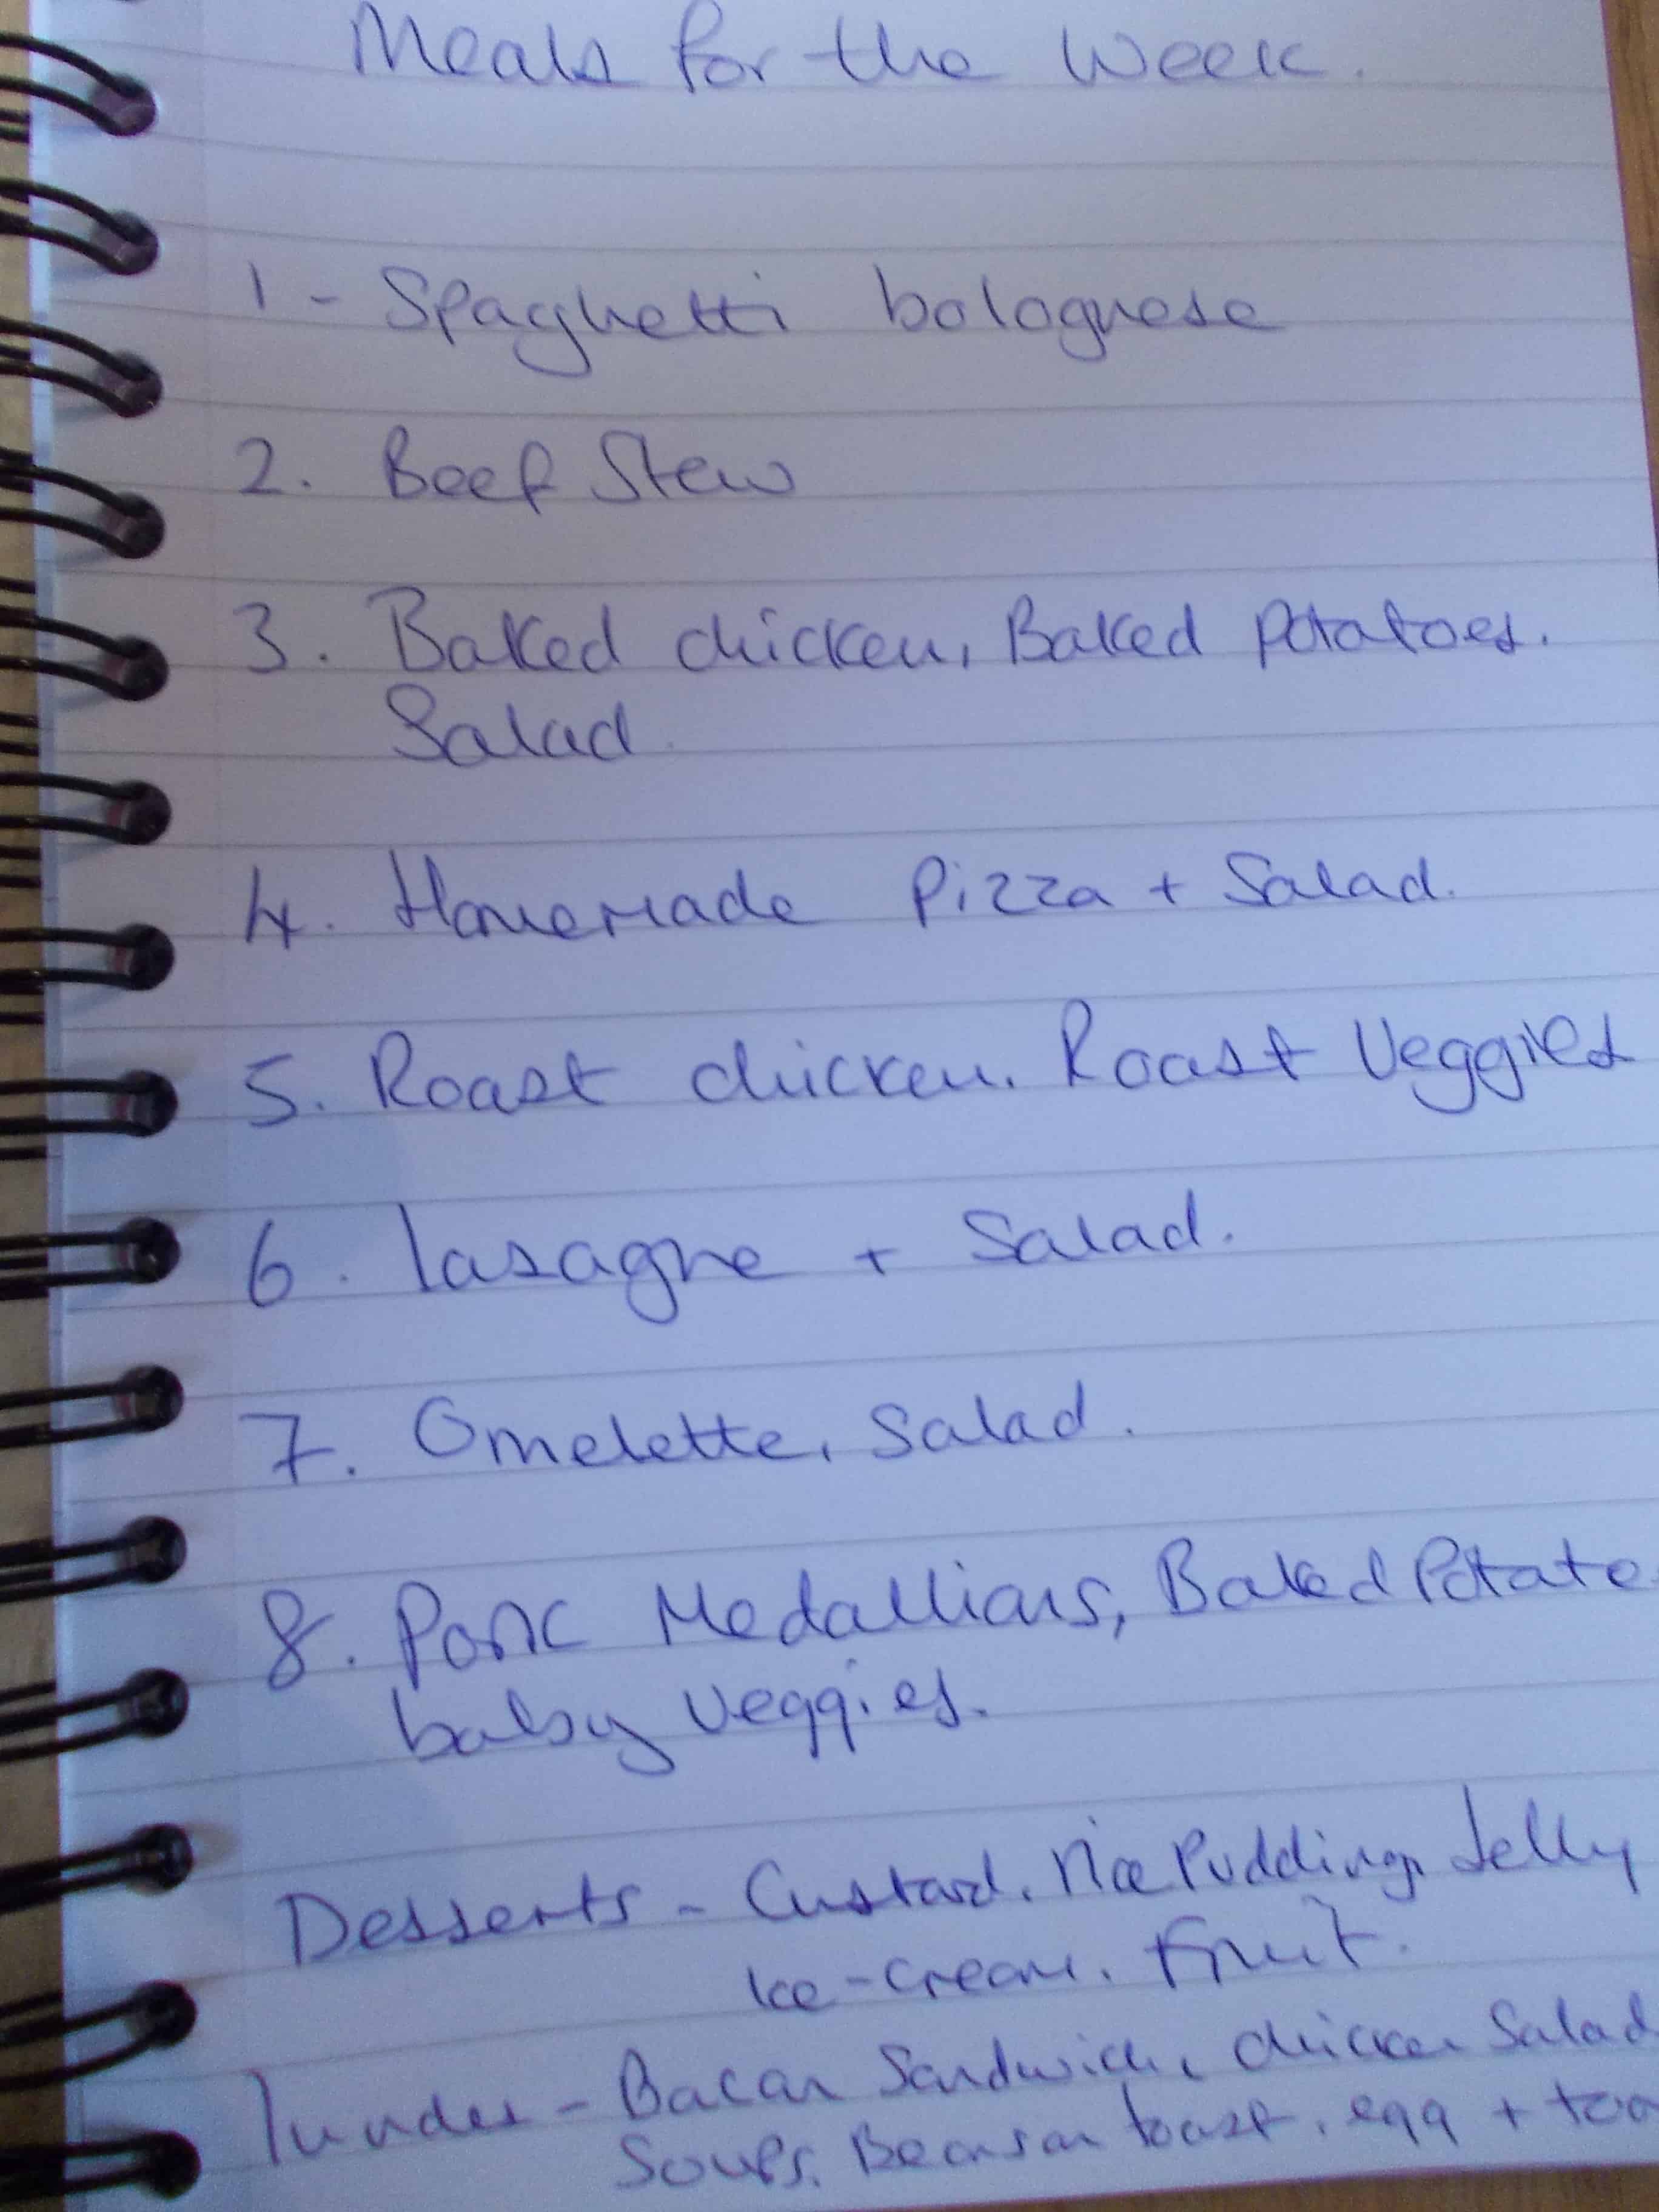 Meals for the Week.
1 - Spaghetti bolognese
2. Beef Stew
3. Baked chicken, Baked potatoes.
Salad.
4. Homemade Pizza + Salad.
5. Roast chicken. Roast Veggies
6. lasagne + Salad.
7. Omelette, Salad.
8. Pork Medallions, Baked Potato
baby veggies.
Desserts - Custard. rice Pudding. Jelly
Ice-cream. Fruit.
lunches - Bacon Sandwich, chicken Salad
Soups. Beans on toast, egg + toa